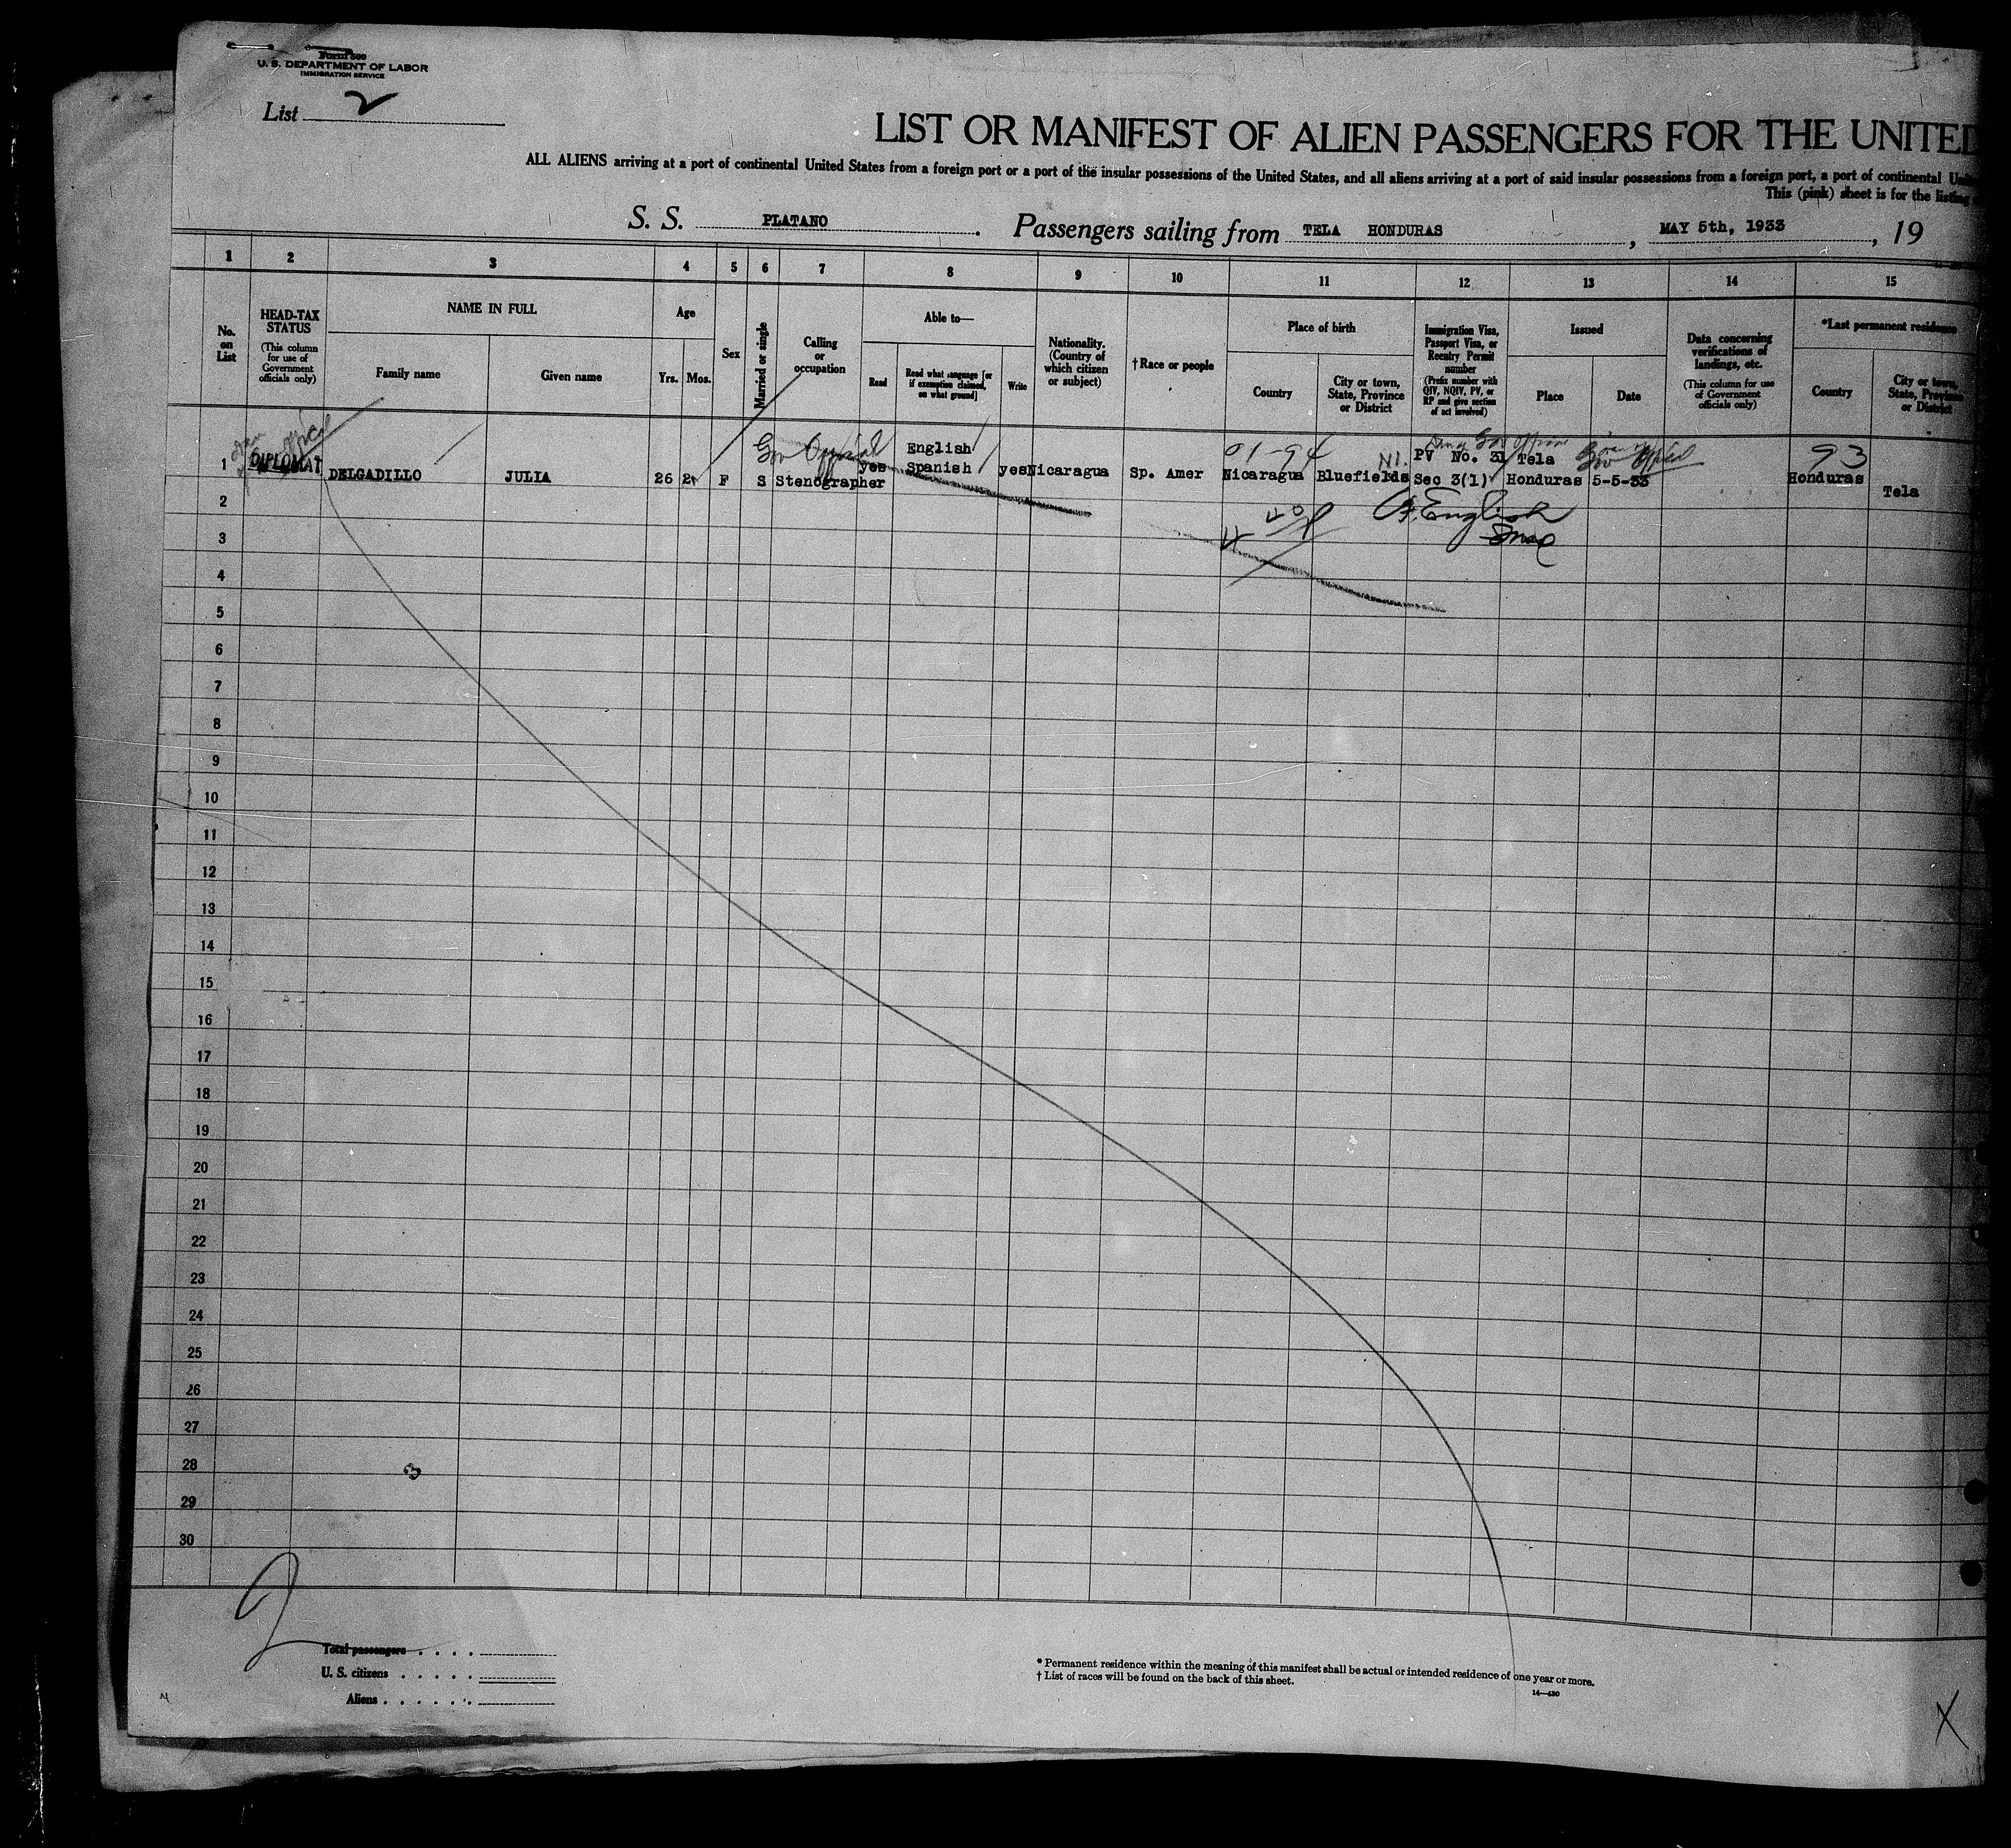 Form 500
U. S. DEPARTMENT OF LABOR
IMMIGRATION SERVICE
List 2
LIST OR MANIFEST OF ALIEN PASSENGERS FOR THE UNITED
ALL ALIENS arriving at a port of continental United States from a foreign port or a port of the insular possessions of the United States, and all aliens arriving at a port of said insular possessions from a foreign port, a port of continental
This (pink) sheet is for the listing
S. S. PLATANO. Passengers sailing from TELA HONDURAS, MAY 5th, 1933, 19
1 2 3 4 5 6 7 8 9 10 11 12 13 14 15
No. on List
HEAD-TAX STATUS
(This column for use of Government officials only)
NAME IN FULL
Family name
Given name
Age
Yrs. Mos.
Sex
Married or single
Calling or occupation
Able to—
Read
Read what language [or if exemption claimed, on what ground]
Write
Nationality. (Country of which citizen or subject)
† Race or people
Place of birth
Country
City or town, State, Province or District
Immigration Visa, Passport Visa, or Reentry Permit number
(Prefix number with QIV, NQIV, PV, or RP and give section of act involved)
Issued
Place
Date
Data concerning verifications of landings, etc.
(This column for use of Government officials only)
*Last permanent residence
Country
City or town, State, Province or District
Gov Official English 01-94 N1. PV No. 31 Tela Gov Official 93
1 DIPLOMAT DELGADILLO JULIA 26 2 F S Stenographer yes Spanish yes Nicaragua Sp. Amer Nicaragua Bluefields Sec 3(1) Honduras 5-5-33 Honduras Tela
2
English
3
4
5
6
7
8
9
10
11
12
13
14
15
16
17
18
19
20
21
22
23
24
25
26
27
28
3
29
30
2
Total passengers . . . .
U. S. citizens . . . . .
Aliens . . . . . .
* Permanent residence within the meaning of this manifest shall be actual or intended residence of one year or more.
† List of races will be found on the back of this sheet.
14—430
X